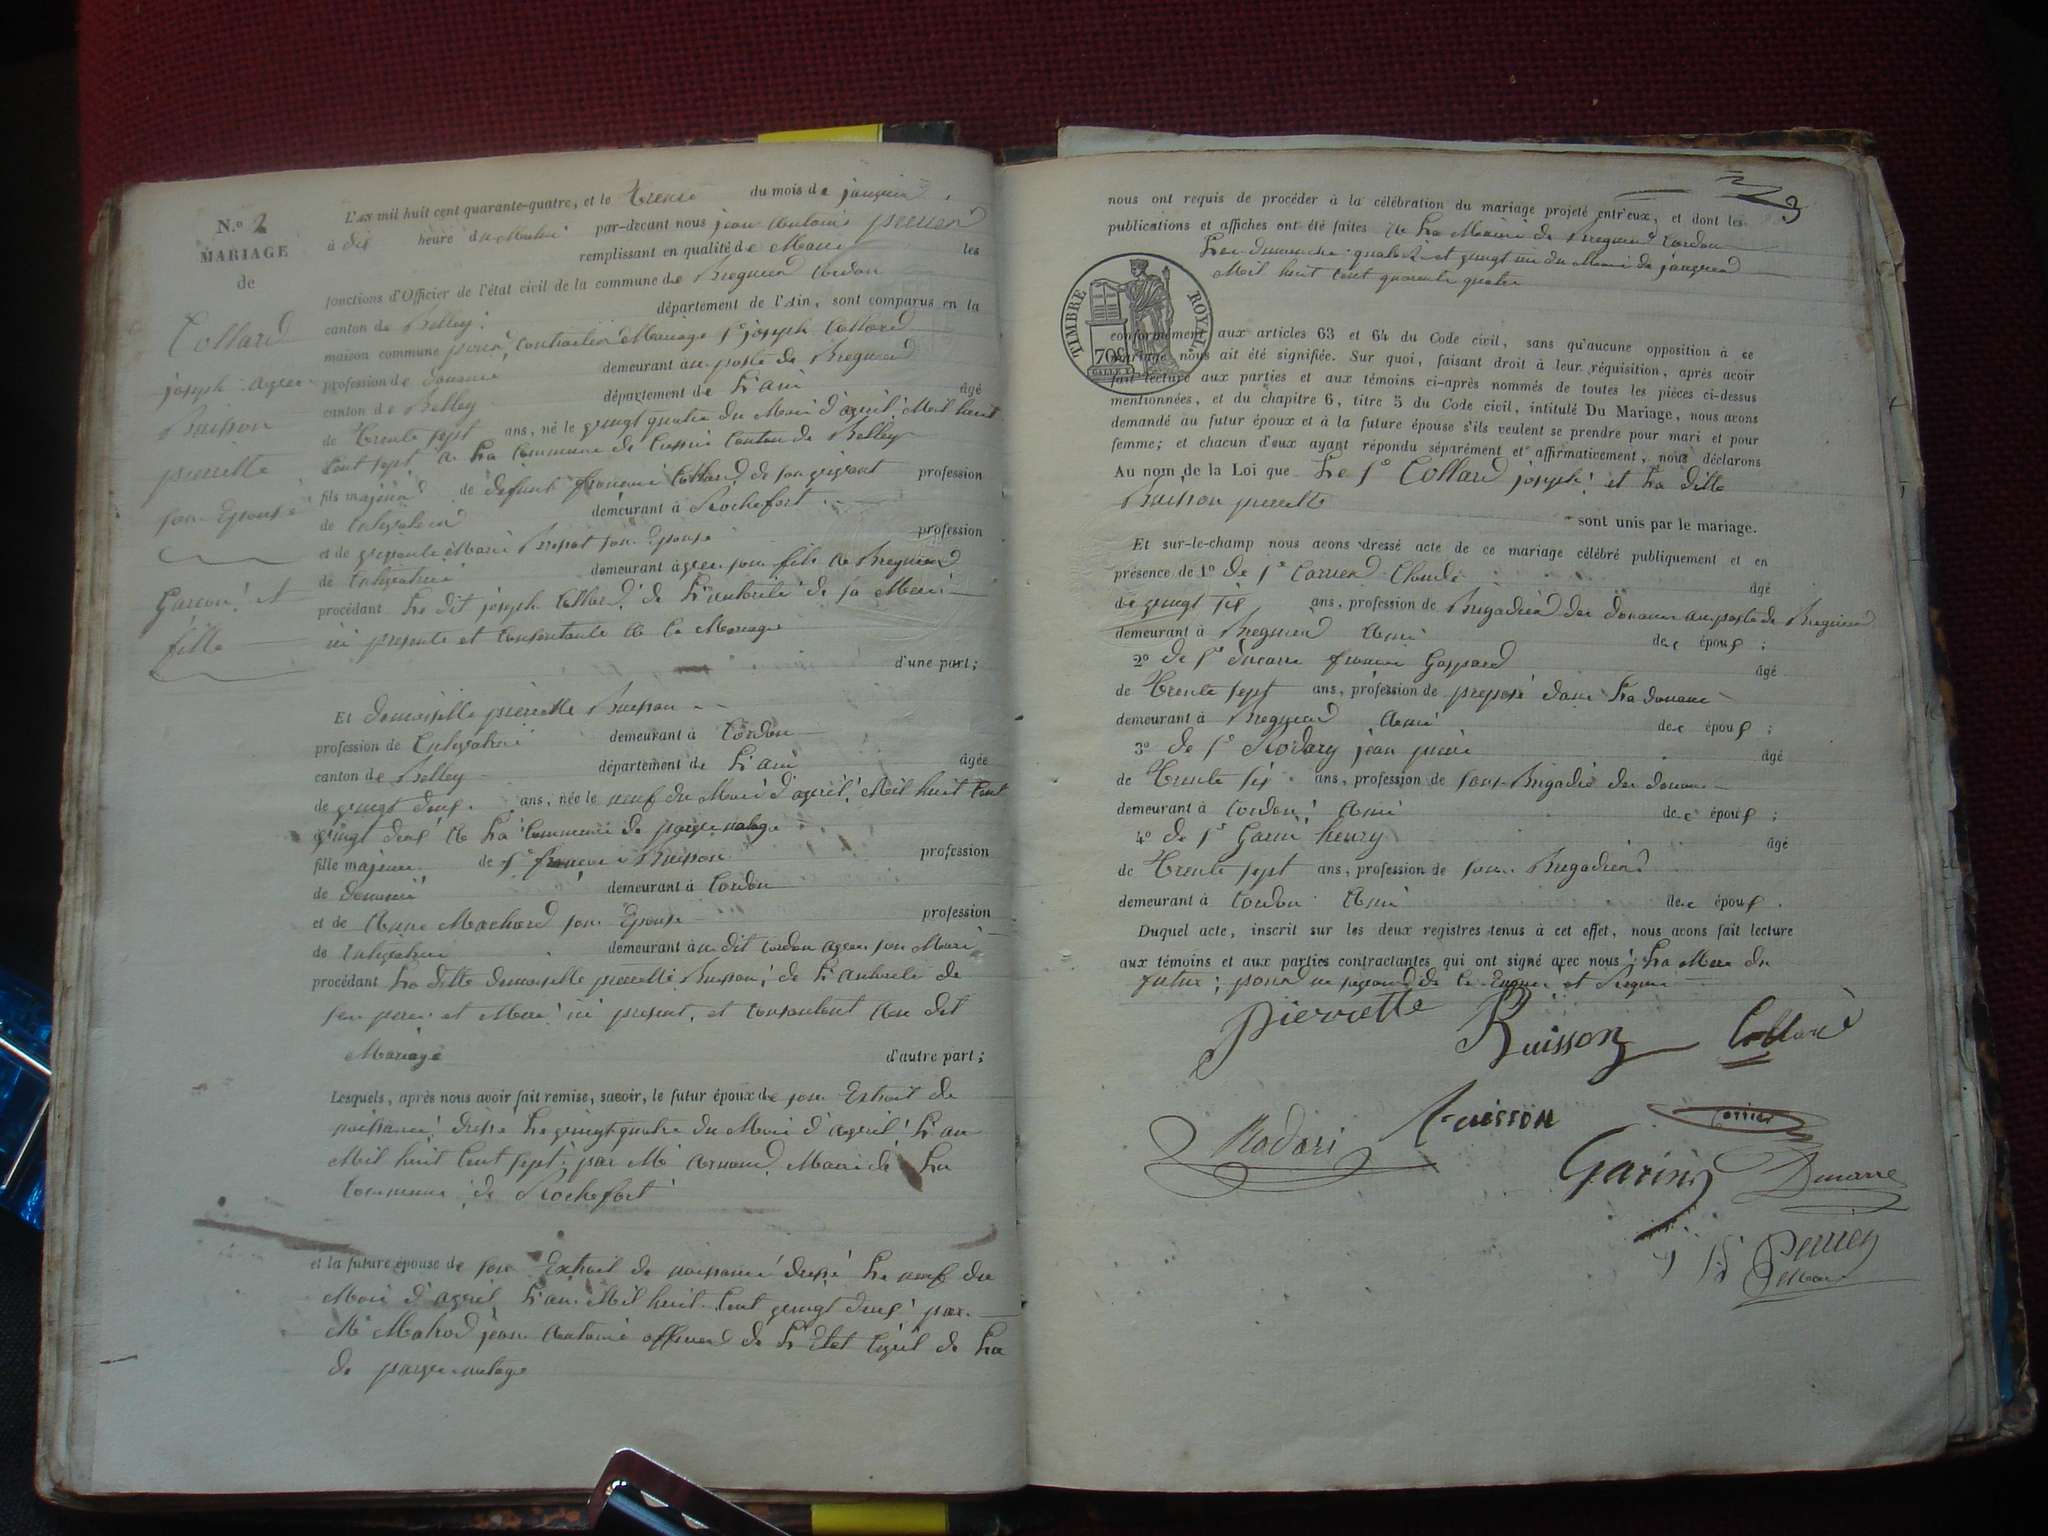 N.o 2
MARIAGE
de
Collard
joseph avec
Buisson
pierrette
son Epouse
Garcon et
fille
L'an mil huit cent quarante-quatre, et le trente du mois de janvier
à dix heure du Matin par-devant nous jean Antoine perrier
remplissant en qualité de Maire les
fonctions d'Officier de l'état civil de la commune de Bregnier Cordon
canton de Belley département de l'Ain, sont comparus en la
maison commune pour contracter Mariage Sr joseph Collard
profession de douanier demeurant au poste de Bregnier
canton de Belley département de L'ain âgé
de trente sept ans, né le vingt quatre du Mois d'avril Mil huit
Cent sept a La Commune de Canton de Belley
fils majeur de defunt francois Collard de son vivant profession
de Cultivateur demeurant à Rochefort
et de vivante Marie son Epouse profession
de Cultivatrice demeurant avec son fils a Bregnier
procédant Le dit joseph Collard de L'autorité de sa Mere
ici presente et Consentante a Ce Mariage
d'une part;
Et demoiselle pierrette Buisson
profession de Cultivatrice demeurant à Cordon
canton de Belley département de L'ain âgée
de vingt deux ans, née le neuf du Mois d'avril Mil huit Cent
vingt deux a La Commune de
fille majeure de Sr francois Buisson profession
de douanier demeurant à Cordon
et de Anne Machard son Epouse profession
de Cultivatrice demeurant au dit Cordon avec son Mari
procédant La ditte demoiselle pierrette Buisson de L'autorité de
ses pere et Mere ici present, et Consentent Au dit
Mariage d'autre part;
Lesquels, après nous avoir fait remise, savoir, le futur époux de son Extrait de
naissance dressé Le vingt quatre du Mois d'avril L'an
Mil huit Cent sept par Mr Arnaud Maire de La
Commune de Rochefort
et la future épouse de son Extrait de naissance dressé Le neuf du
Mois d'avril L'an Mil huit Cent vingt deux par
Mr jean Antoine officier de L'Etat Civil de La
de
3
nous ont requis de procéder à la célébration du mariage projeté entr'eux, et dont les
publications et affiches ont été faites a La Mairie de Bregnier Cordon
Les dimanche quatorze et vingt un du Mois de janvier
Mil huit Cent quarante quatre
TIMBRE ROYAL
70c
conformément aux articles 63 et 64 du Code civil, sans qu'aucune opposition à ce
mariage nous ait été signifiée. Sur quoi, faisant droit à leur réquisition, après avoir
fait lecture aux parties et aux témoins ci-après nommés de toutes les pièces ci-dessus
mentionnées, et du chapitre 6, titre 5 du Code civil, intitulé Du Mariage, nous avons
demandé au futur époux et à la future épouse s'ils veulent se prendre pour mari et pour
femme; et chacun d'eux ayant répondu séparément et affirmativement, nous déclarons
Au nom de la Loi que Le Sr Collard joseph et La ditte
Buisson pierrette
sont unis par le mariage.
Et sur-le-champ nous avons dressé acte de ce mariage célébré publiquement et en
présence de 1o de Sr Claude âgé
de vingt six ans, profession de Brigadier des douanes au poste de Bregnier
demeurant à Bregnier Ami des époux;
2o de Sr francois Gaspard âgé
de trente sept ans, profession de preposé dans La douane
demeurant à Bregnier Ami des époux;
3o de Sr Rodary jean pierre âgé
de trente six ans, profession de sous Brigadié des douanes
demeurant à Cordon Ami des époux;
4o de Sr Garin henry âgé
de trente sept ans, profession de sous Brigadier
demeurant à Cordon Ami des époux.
Duquel acte, inscrit sur les deux registres tenus à cet effet, nous avons fait lecture
aux témoins et aux parties contractantes qui ont signé avec nous La Mere du
futur pour ne savoir de Ce Enquis et Requis
pierrette Buisson Collard
Rodari Buisson
Garin
Perrier